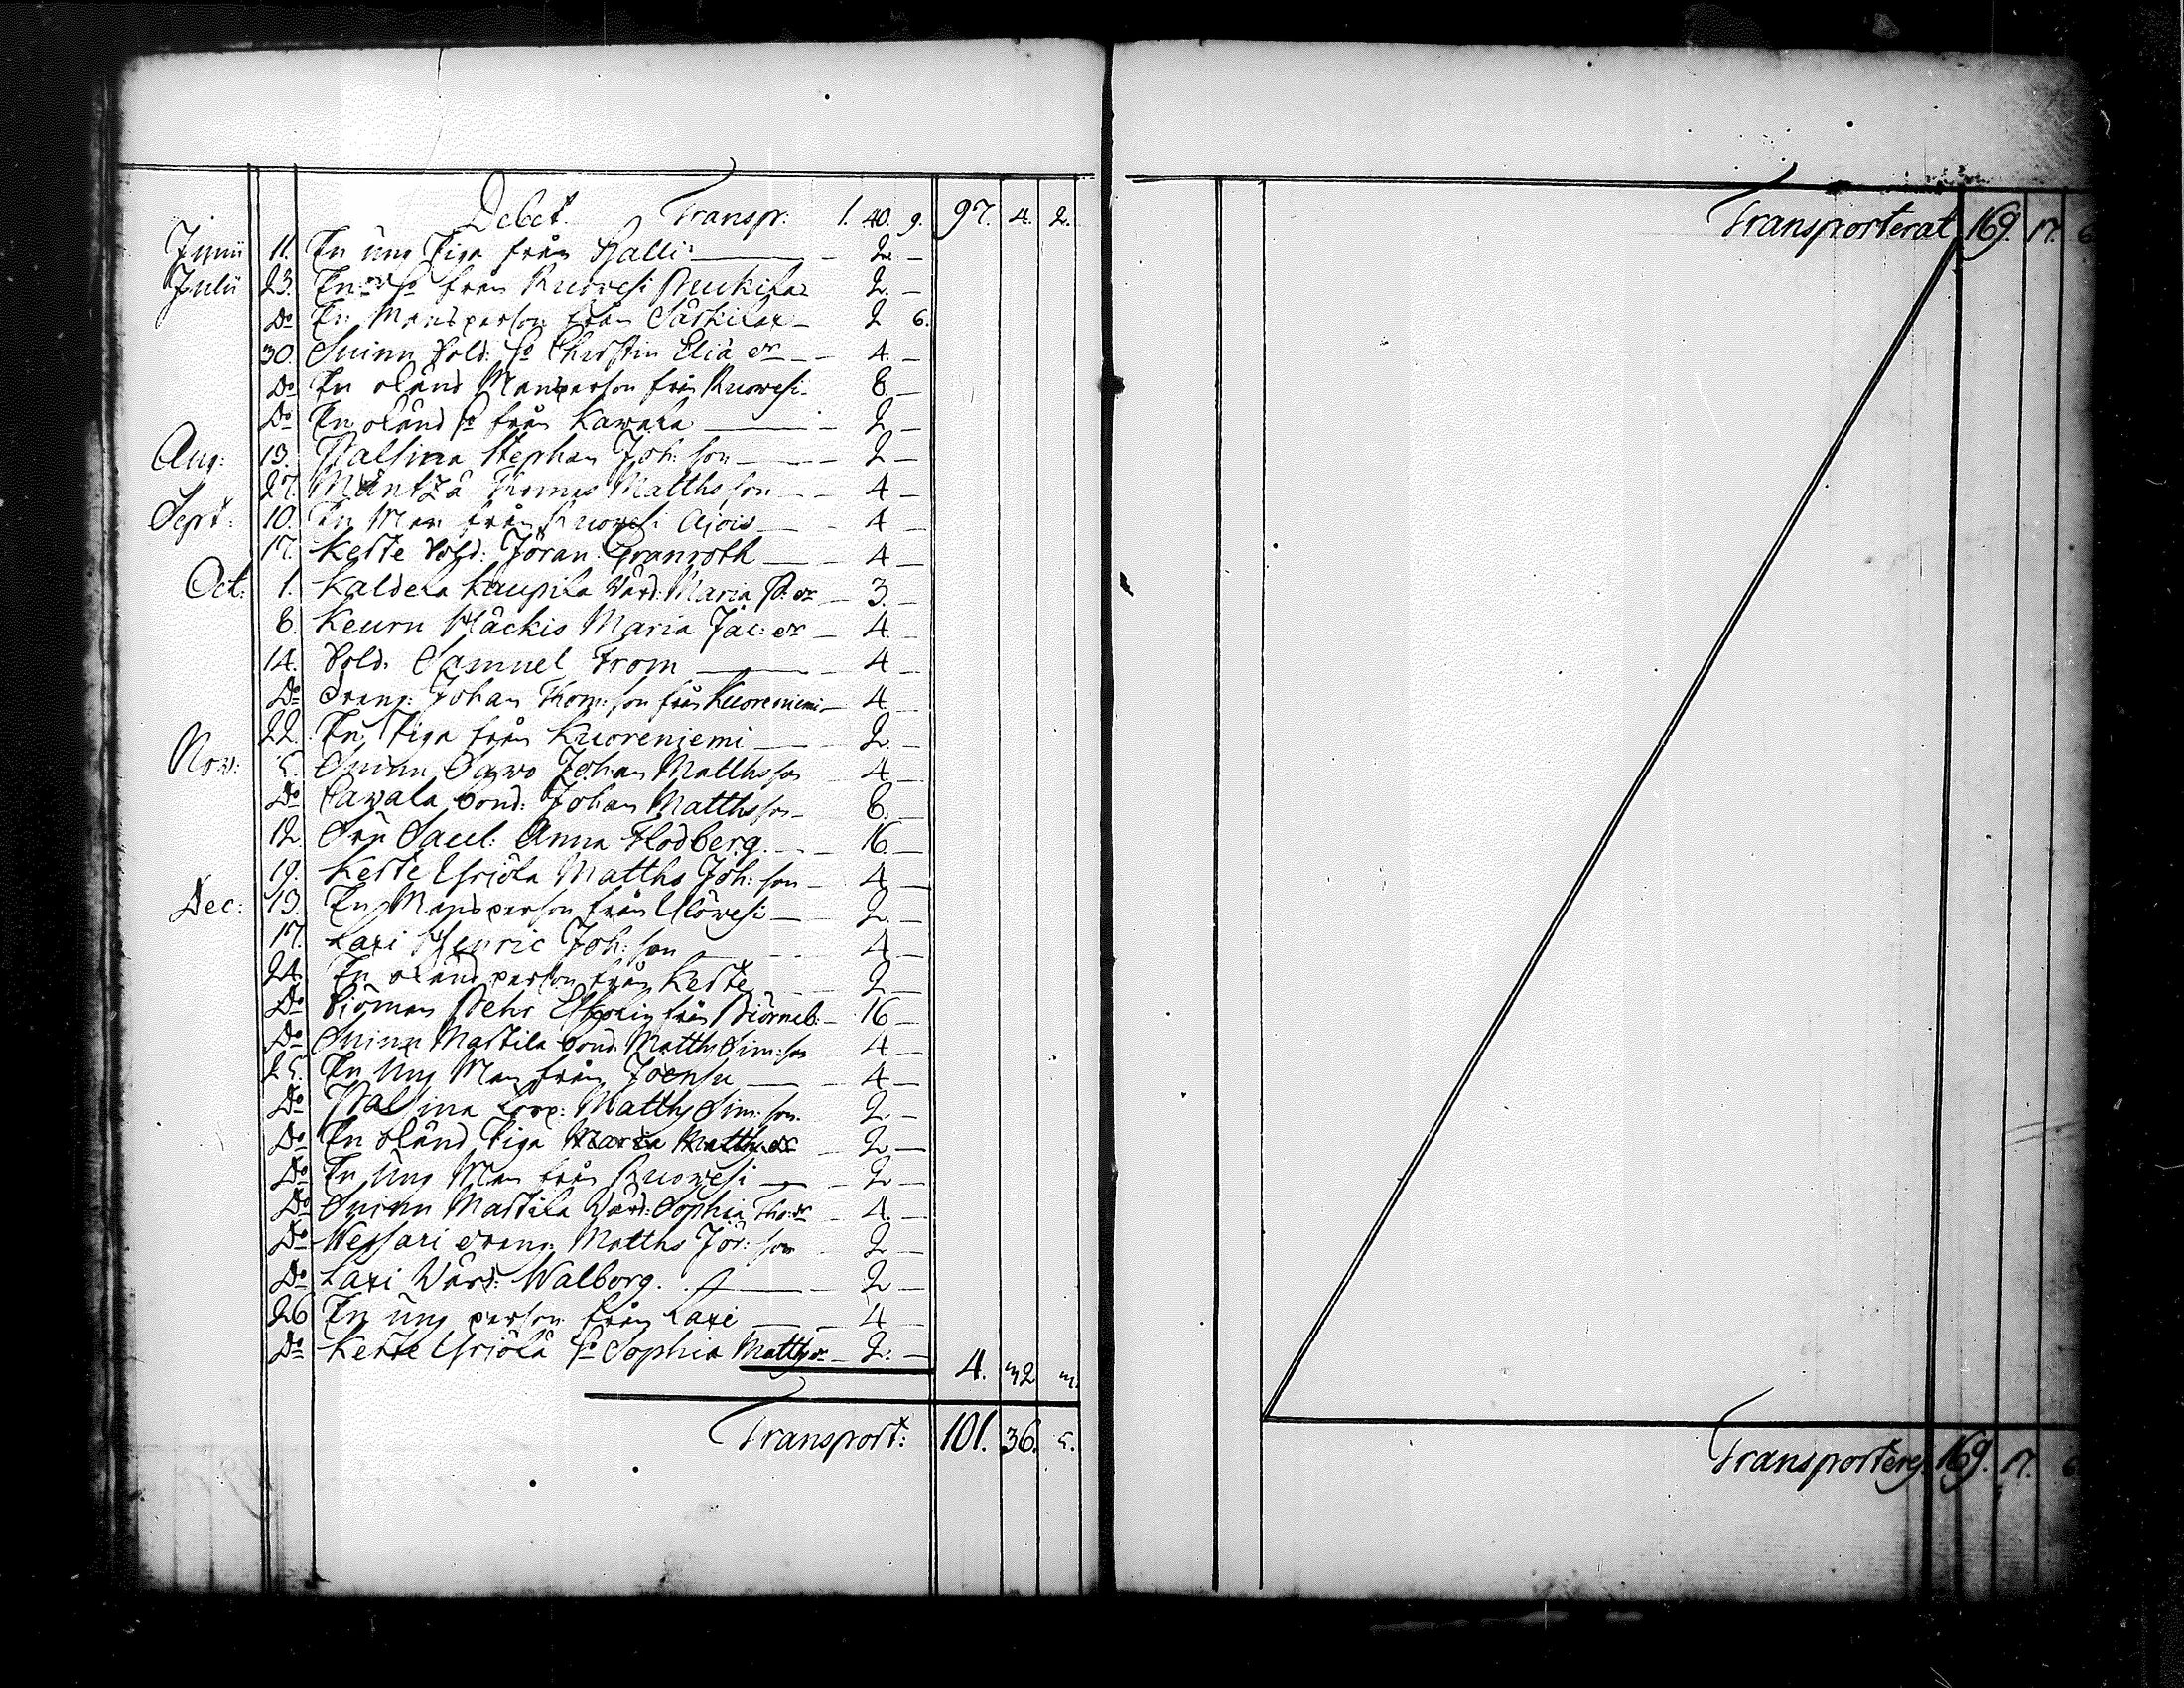 Debet. Transp: 1. 40. 9. 97. 4. 2.
Junii 11. En ung Piga från Ralli 2. —
Julii 23. En do från Ruovesi Muckila 2. —
Do En Mansperson från Särkilax 2 6.
30. Suinu Sold: Ho Christin Elia dr 4. —
Do En okänd Mansperson från Ruowesi 8. —
Do En okänd Ho från Kawala 2 —
Aug: 13. Palsina Stephan Joh: son 2 —
27. Mäntzä Thomas Matthsson 4 —
Sept: 10. En Man från Ruowesi Ajois 4 —
17. Keste Sold: Jöran Granroth 4 —
Oct: 1. Kaldela Kaupila Värd: Maria P: dr 3. —
8. Keuru Häckis Maria Jac: dr 4. —
14. Sold: Samuel From 4 —
Do Dräng: Johan Thom: son från Kuoreniemi 4 —
22. En Piga från Kuoreniemi 2. —
Nov: 5. Suinu Sawo Johan Matthsson 4 —
Do Pawala bond: Johan Matthsson 8. —
12. Fru Sacel: Anna Flodberg 16 —
19. Keste Yriölä Matths Joh: son 4 —
Dec: 13. En Mansperson från Ylöwesi 2. —
17. Laxi Henric Joh: son 4 —
24. En okänd person från Keste 2 —
Do Siöman Pehr från Biörneb: 16 —
Do Suinu Mastila bond: Matths Sim: son 4 —
25. En Ung Man från Joensu 4 —
Do Palsina Torp: Matths Sim: son 2 —
Do En okänd Piga Maria Matths dr 2 —
Do En Ung Man från Ruowesi 2 —
Do Suinu Mastila Värd: Sophia Tho: dr 4. —
Do Wessari dräng: Matths Jör: son 2 —
Do Laxi Värd: Walborg. 2 —
26 En ung person från Laxi 4 —
Do Keste Yriölä Ho Sophia Matths dr 2. — 4. 32 3.
Transport: 101. 36. 5.
Transporterat 169. 17. 6
Transporteres 169. 17. 6